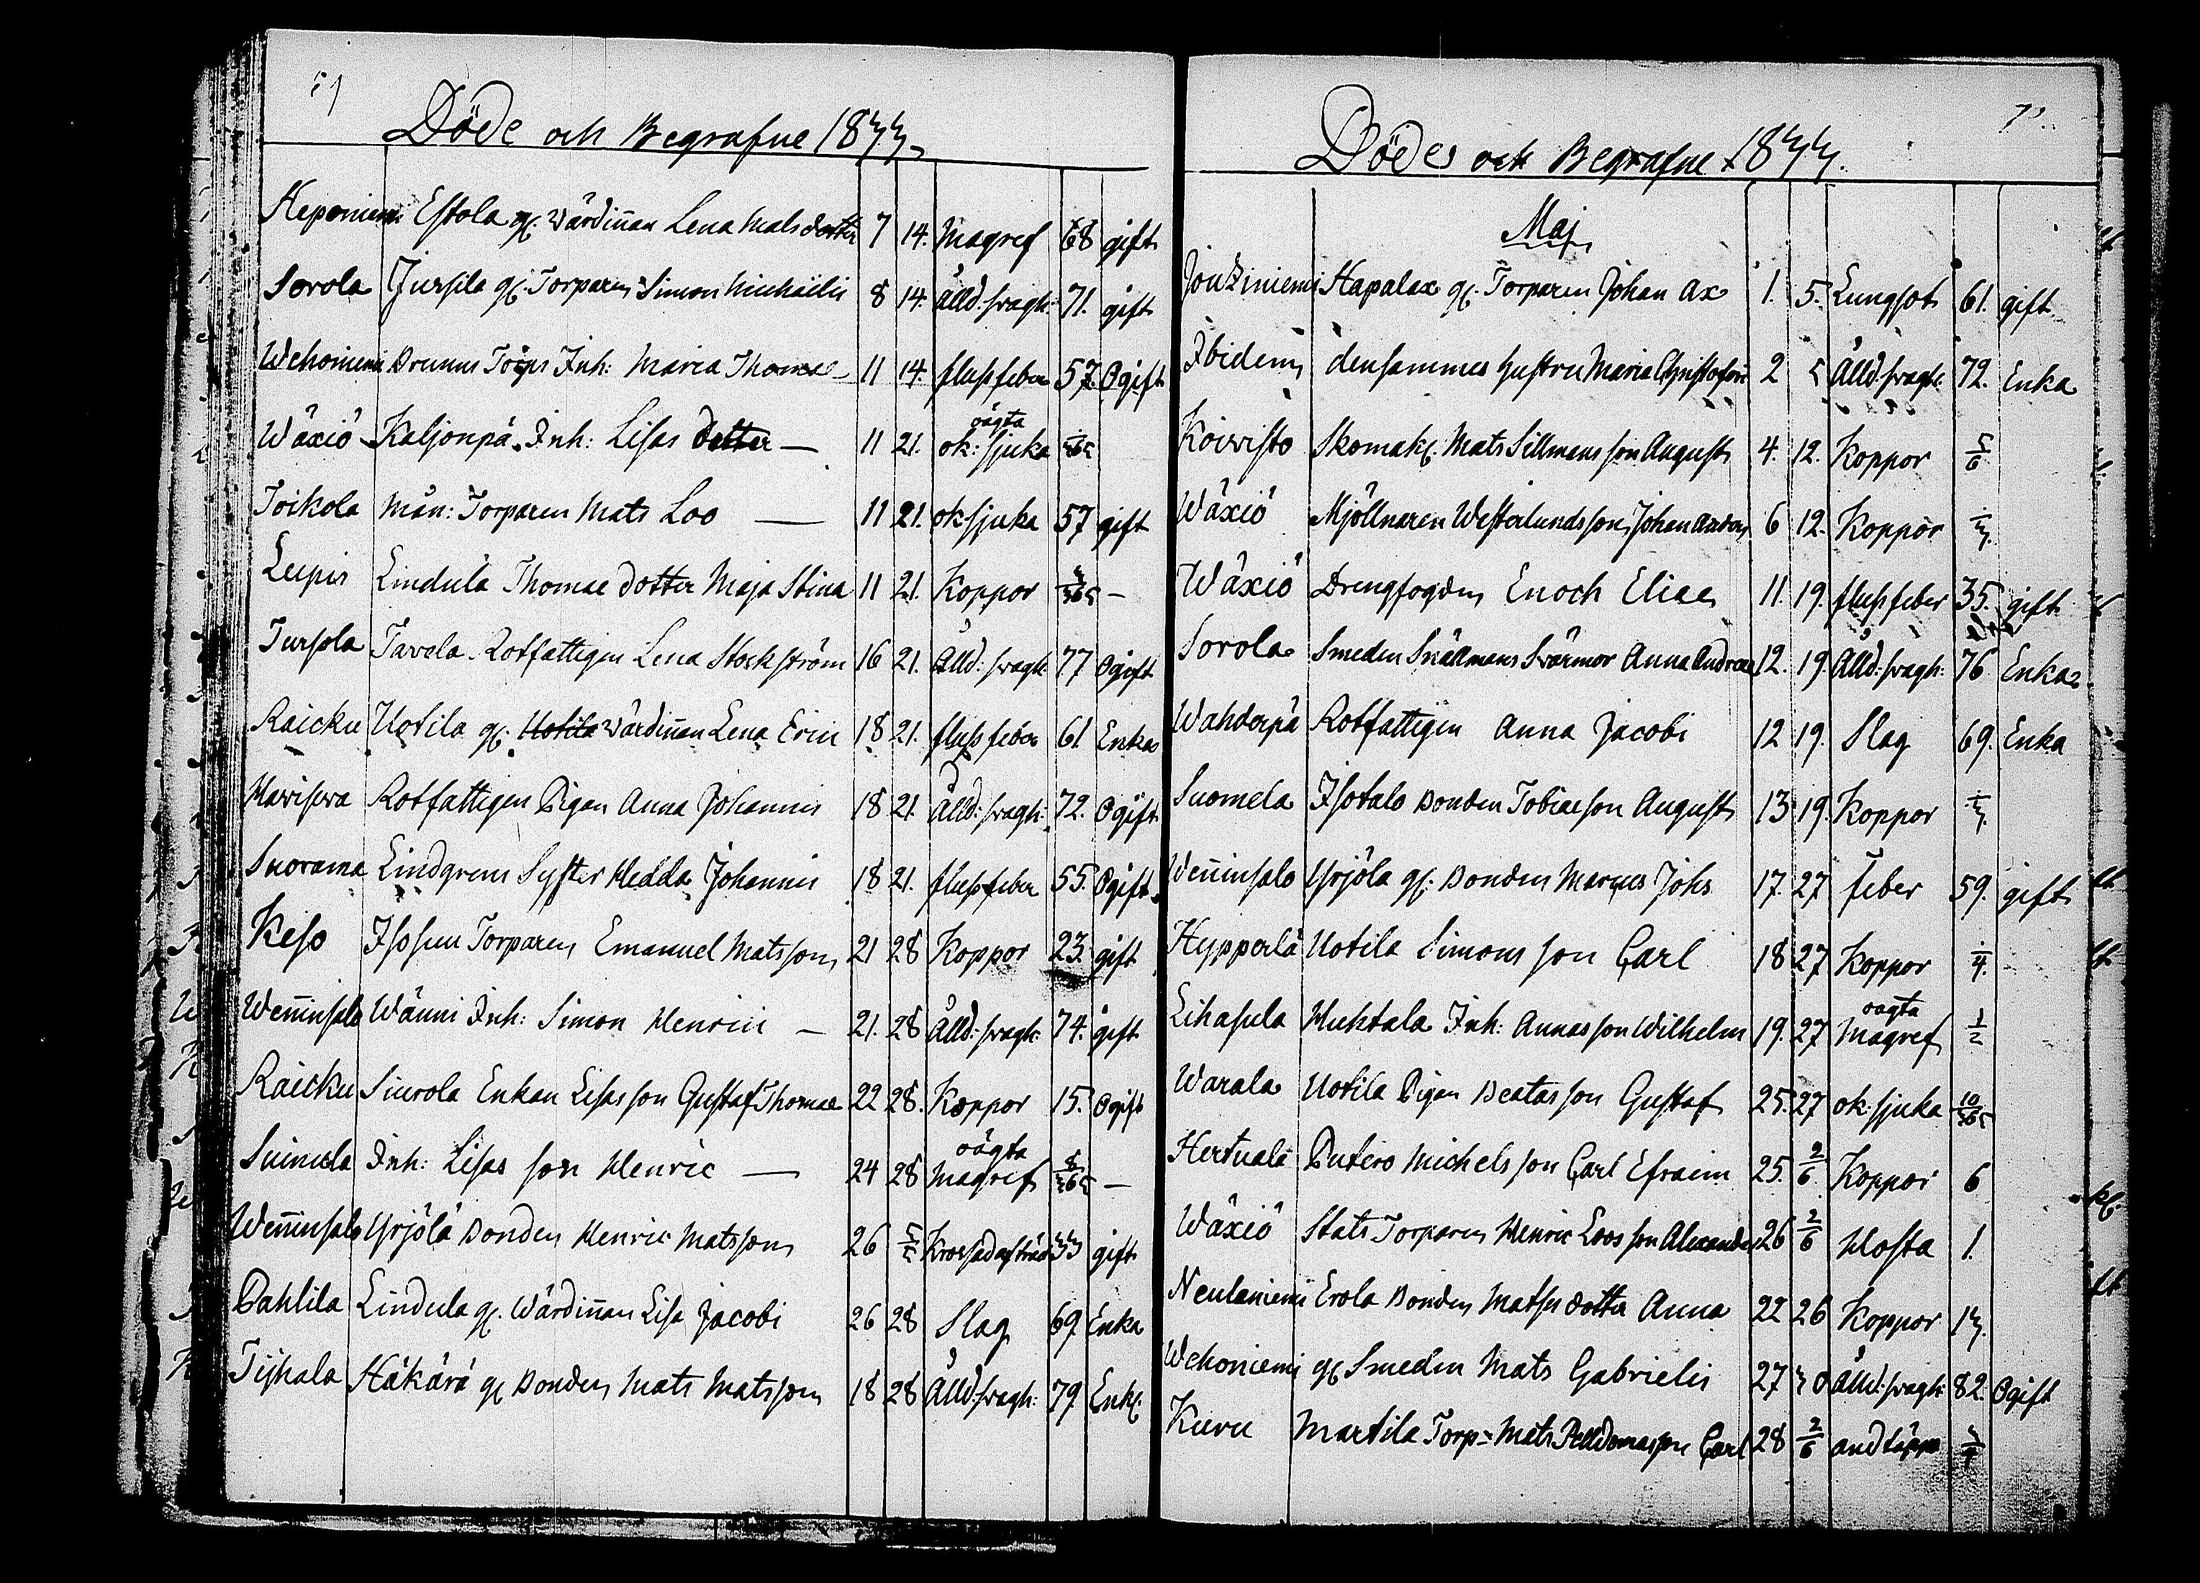 Döde och Begrafne 1833.
Heponiemi Estola gl. Wärdiñan Lena Mats dotter 7 14. Magref 68 gift
Sorola Jursila gl. Torparen Simon Michaëlis 8 14. Ålld: svagh: 71. gift
Wehoniemi Brunns Torps Inh: Maria Thomae — 11 14. flussfeber 57. Ogift
Wäxiö Kaljonpä. Inh: Lisas dotter — 11 21. oägta ok: sjuka
Toikola Mån: Torparen Mats Loo — 11 21. ok sjuka 57 gift
Leipis Lindula Thomae dotter Maja Stina 11 21. Koppor —
Tursola Tavola Rotfattigen Lena Stockström 16 21. Ålld: svagh: 77 Ogift
Raicku Uotila gl. Uotila Wärdiñan Lena Erici 18 21. flussfeber 61 Enka
Hawisewa Rotfattigen Pigan Anna Johannis 18 21. Ålld: svagh: 72. Ogift
Suorama Lindgrens Syster Hedda Johannis 18 21. flussfeber 55. Ogift
Keso Isosun Torparen Emanuel Matsson 21 28 Koppor 23. gift
Weñinsalo Wänni Inh: Simon Henrici — 21. 28 Ålld: svagh: 74. gift
Raicku Siurola Enkan Lisas son Gustaf Thomae 22 28. Koppor 15. Ogift
Suinula Inh: Lisas son Henric — 24 28 oägta Magref 8/365 —
Weñinsalo Yrjölä Bonden Henric Matsson 26 5/5 Krossad af träd 33 gift
Pahlila Lindula gl. Wärdiñan Lisa Jacobi 26 28 Slag 69 Enka
Tijhala Häkärä gl Bonden Mats Matsson 18 28 Ålld: svagh: 79 Enkl.
Döde och Begrafne 1833.
Maj
Jouxiniemi Hapalax gl. Torparen Johan Ax 1. 5. Lungsot 61. gift
Ibidem densammes hustru Maria Christofori 2 5 Ålld: svagh: 72. Enka
Koivisto Skomak. Mats Sillmans son August 4. 12. Koppor 5/6
Wäxiö Mjöllnaren Westerlunds son Johan Anders 6 12. Koppor 1/3.
Wäxiö Drengfogden Enoch Eliae 11. 19. flussfeber 35. gift
Sorola Smeden Snällmans Svärmor Anna Andreae 12. 19. Ålld: svagh: 76 Enka
Wahderpä Rotfattigen Anna Jacobi 12 19. Slag 69. Enka
Suomela Isotalo Bonden Tobiae son August 13 19. Koppor 1/3.
Weñinsalo Yrjölä gl: Bonden Marcus Johs 17. 27 feber 59. gift
Hypperlä Uotila Simons son Carl 18 27 Koppor 1/4.
Lihasula Huhtala Inh: Annas son Wilhelm 19. 27 oagta Magref 1/2
Warala Uotila Pigan Beatas son Gustaf 25. 27 ok: sjuka 10/365
Hertuala Putero Michels son Carl Efraim 25. 2/6 Koppor 6
Wäxiö Stats Torparen Henric Loos son Alexander 26 2/6 Hosta 1.
Neulaniemi Erola Bonden Matses dotter Anna 22 26 Koppor 13.
Wehoniemi gl Smeden Mats Gabrielis 27 30 Ålld: svagh: 82. Ogift
Kuru Martila Torp= Mats son Carl 28 2/6 andtäppa